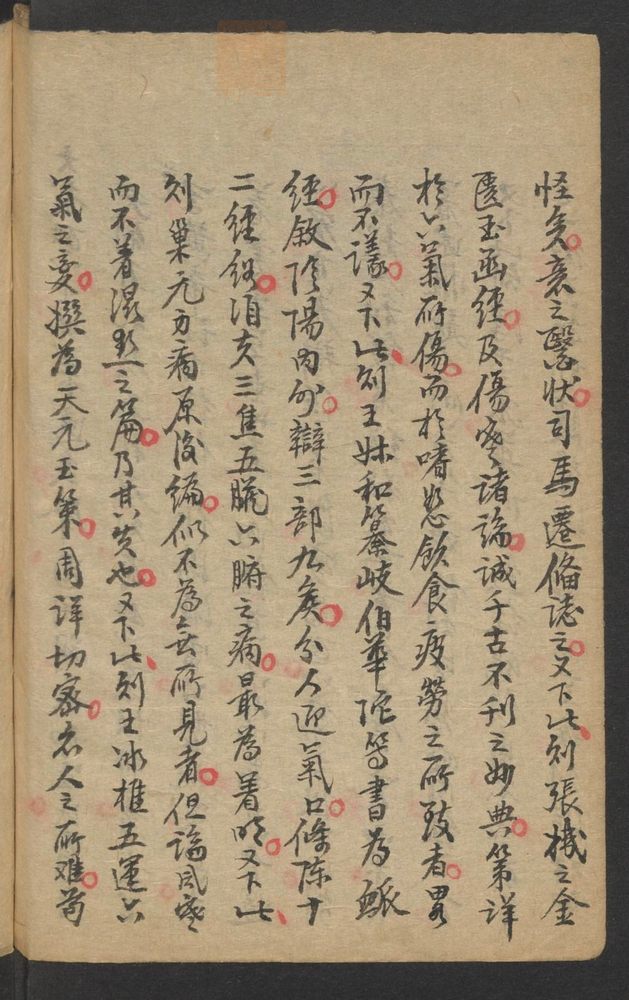 怪矣意之醫状司馬遷俻誌之又下此則張機之金
匱玉函經及傷寒諸論誠千古不刋之妙典第詳
於六氣所傷而於嗜慾飲食疲勞之所致者畧
而不議又下此則王㛃和纂岐伯華陀等書為䘑
經敘陰陽內外辯三部九矦分人迎氣口條陳十
二經絡洎夫三焦五臟六腑之病最為着明又下此
則巢元方病原俊編似不為無所見者但論風寒
而不着濕热之篇乃其失也又下此則王冰推五運六
氣之变撰為天元玉策周詳切密名人之所难苟